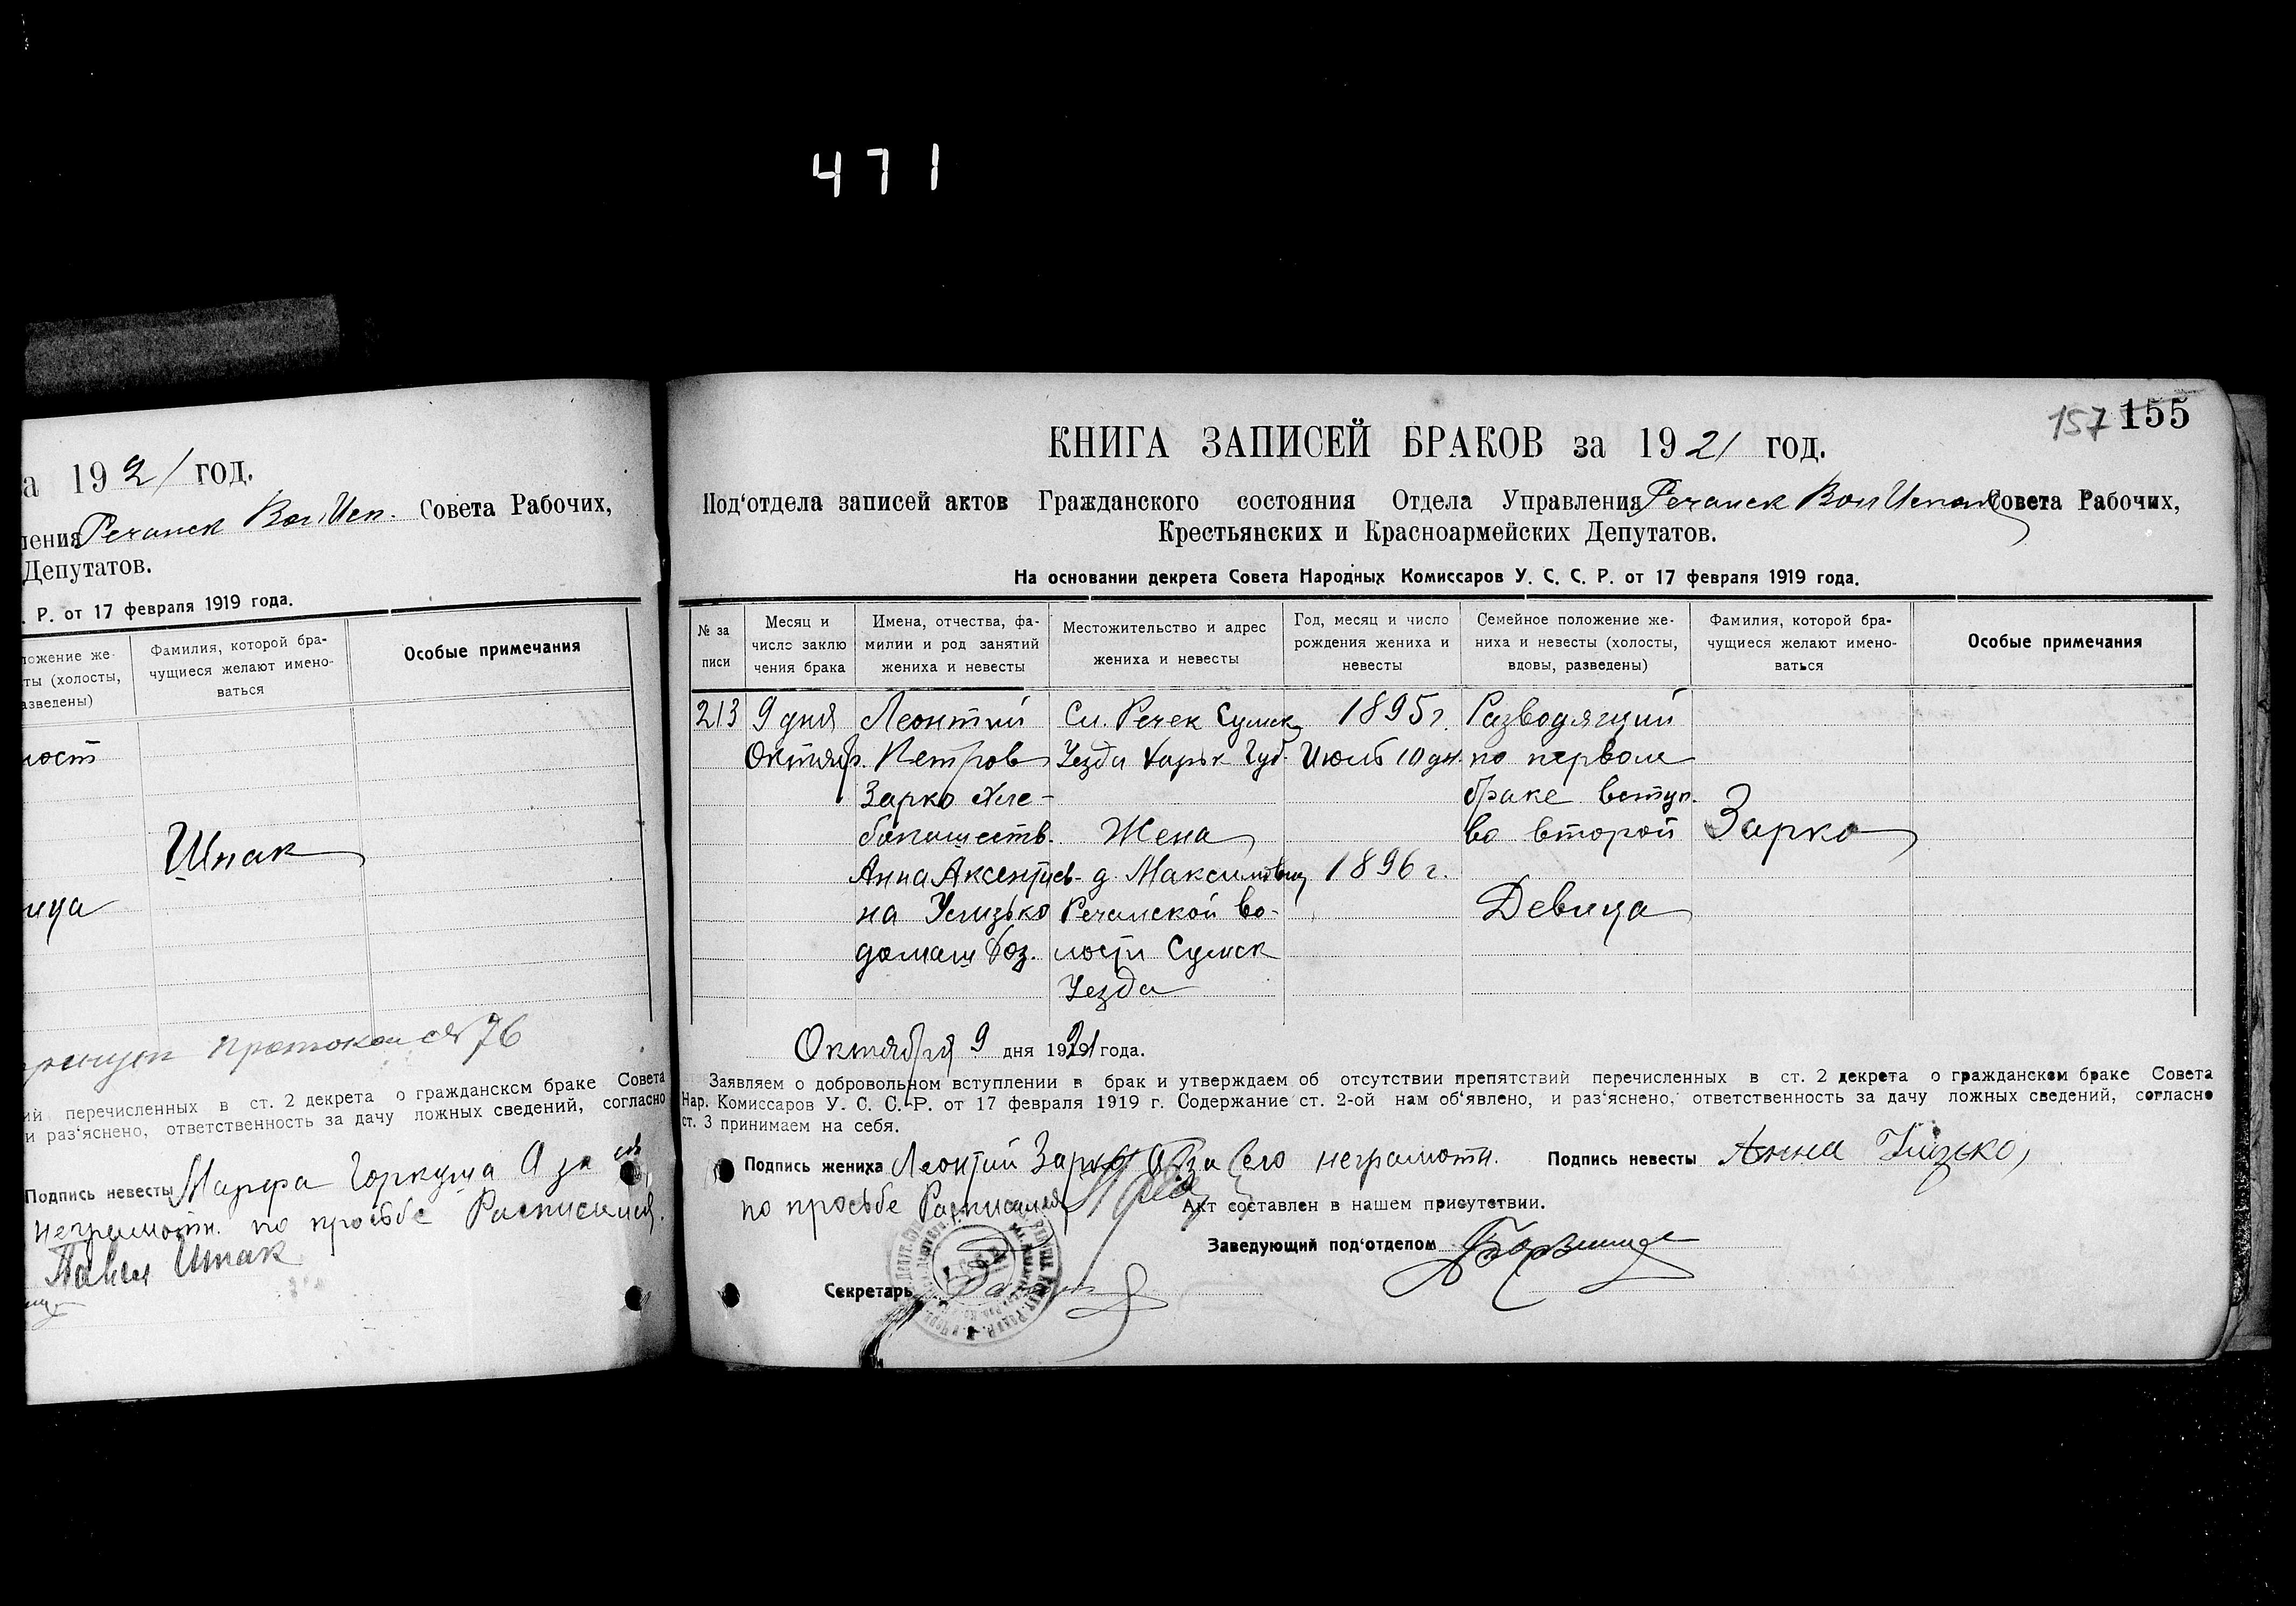 471
а 1921 год.
ления Речанск Вол Исп. Совета Рабочих,
Депутатов.
. Р. от 17 февраля 1919 года.
ложение же-
ты (холосты,
азведены)
Фамилия, которой бра-
чущиеся желают имено-
ваться
Особые примечания
лост
Шпак
ица
протокол № 76
ий перечисленных в ст. 2 декрета о гражданском браке Совета
и раз‘яснено, ответственность за дачу ложных сведений, согласно
Подпись невесты Марфа Горкуша А за
неграмотн. по просьбе Расписался.
Павел Шпак
157 155
КНИГА ЗАПИСЕЙ БРАКОВ за 1921 год.
Под‘отдела записей актов Гражданского состояния Отдела Управления Речанск Вол Исполк Совета Рабочих,
Крестьянских и Красноармейских Депутатов.
На основании декрета Совета Народных Комиссаров У. С. С. Р. от 17 февраля 1919 года.
№ за
писи
Месяц и
число заклю
чения брака
Имена, отчества, фа-
милии и род занятий
жениха и невесты
Местожительство и адрес
жениха и невесты
Год, месяц и число
рождения жениха и
невесты
Семейное положение же-
ниха и невесты (холосты,
вдовы, разведены)
Фамилия, которой бра-
чущиеся желают имено-
ваться
Особые примечания
213 9 дня Леонтий Сл. Речек Сумск 1895 г. Разводящий
Октябр. Петров Уезда Харьк Губ. Июль 10 дн. по первом
Зарко Хле- браке вступ.
бопашеств. Жена во второй Зарко
Анна Аксентьев- д. Максимовщ 1896 г.
на Углизько Речанской во- Девица
домаш хоз. лости Сумск
Уезда
Октября 9 дня 1921 года.
Заявляем о добровольном вступлении в брак и утверждаем об отсутствии препятствий перечисленных в ст. 2 декрета о гражданском браке Совета
Нар. Комиссаров У. С. С. Р. от 17 февраля 1919 г. Содержание ст. 2-ой нам об‘явлено, и раз‘яснено, ответственность за дачу ложных сведений, согласно
ст. 3 принимаем на себя.
Подпись жениха Леонтий Зарко А за его неграмотн. Подпись невесты Анна
по просьбе Расписался
Акт составлен в нашем присутствии.
Заведующий под‘отделом
Секретарь